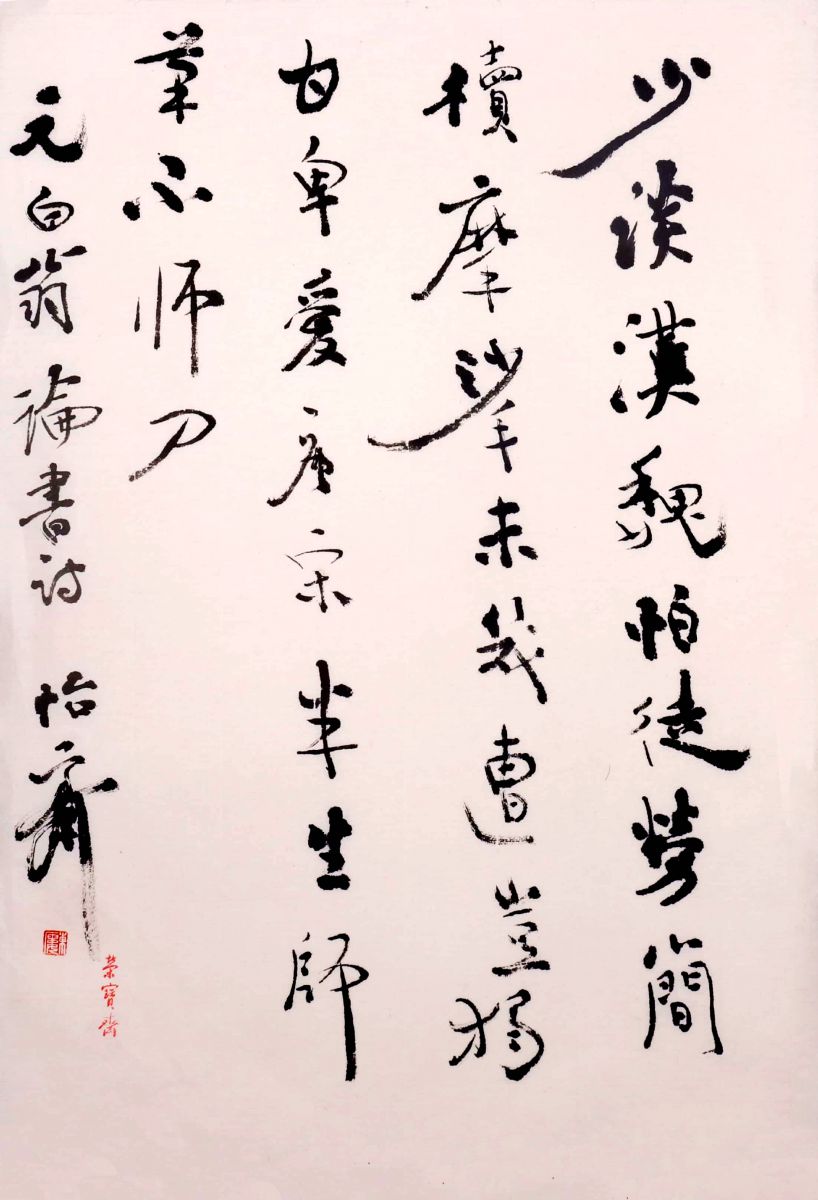 少談漢魏怕徒勞簡
牘摩挲未幾遭豈獨
甘卑愛唐宋半生師
筆不师刀
元白翁論書詩 怡齋
榮寶齋